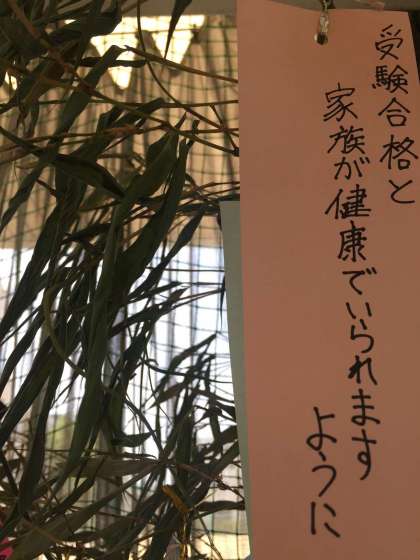 受験合格と
家族が健康でいられます
ように